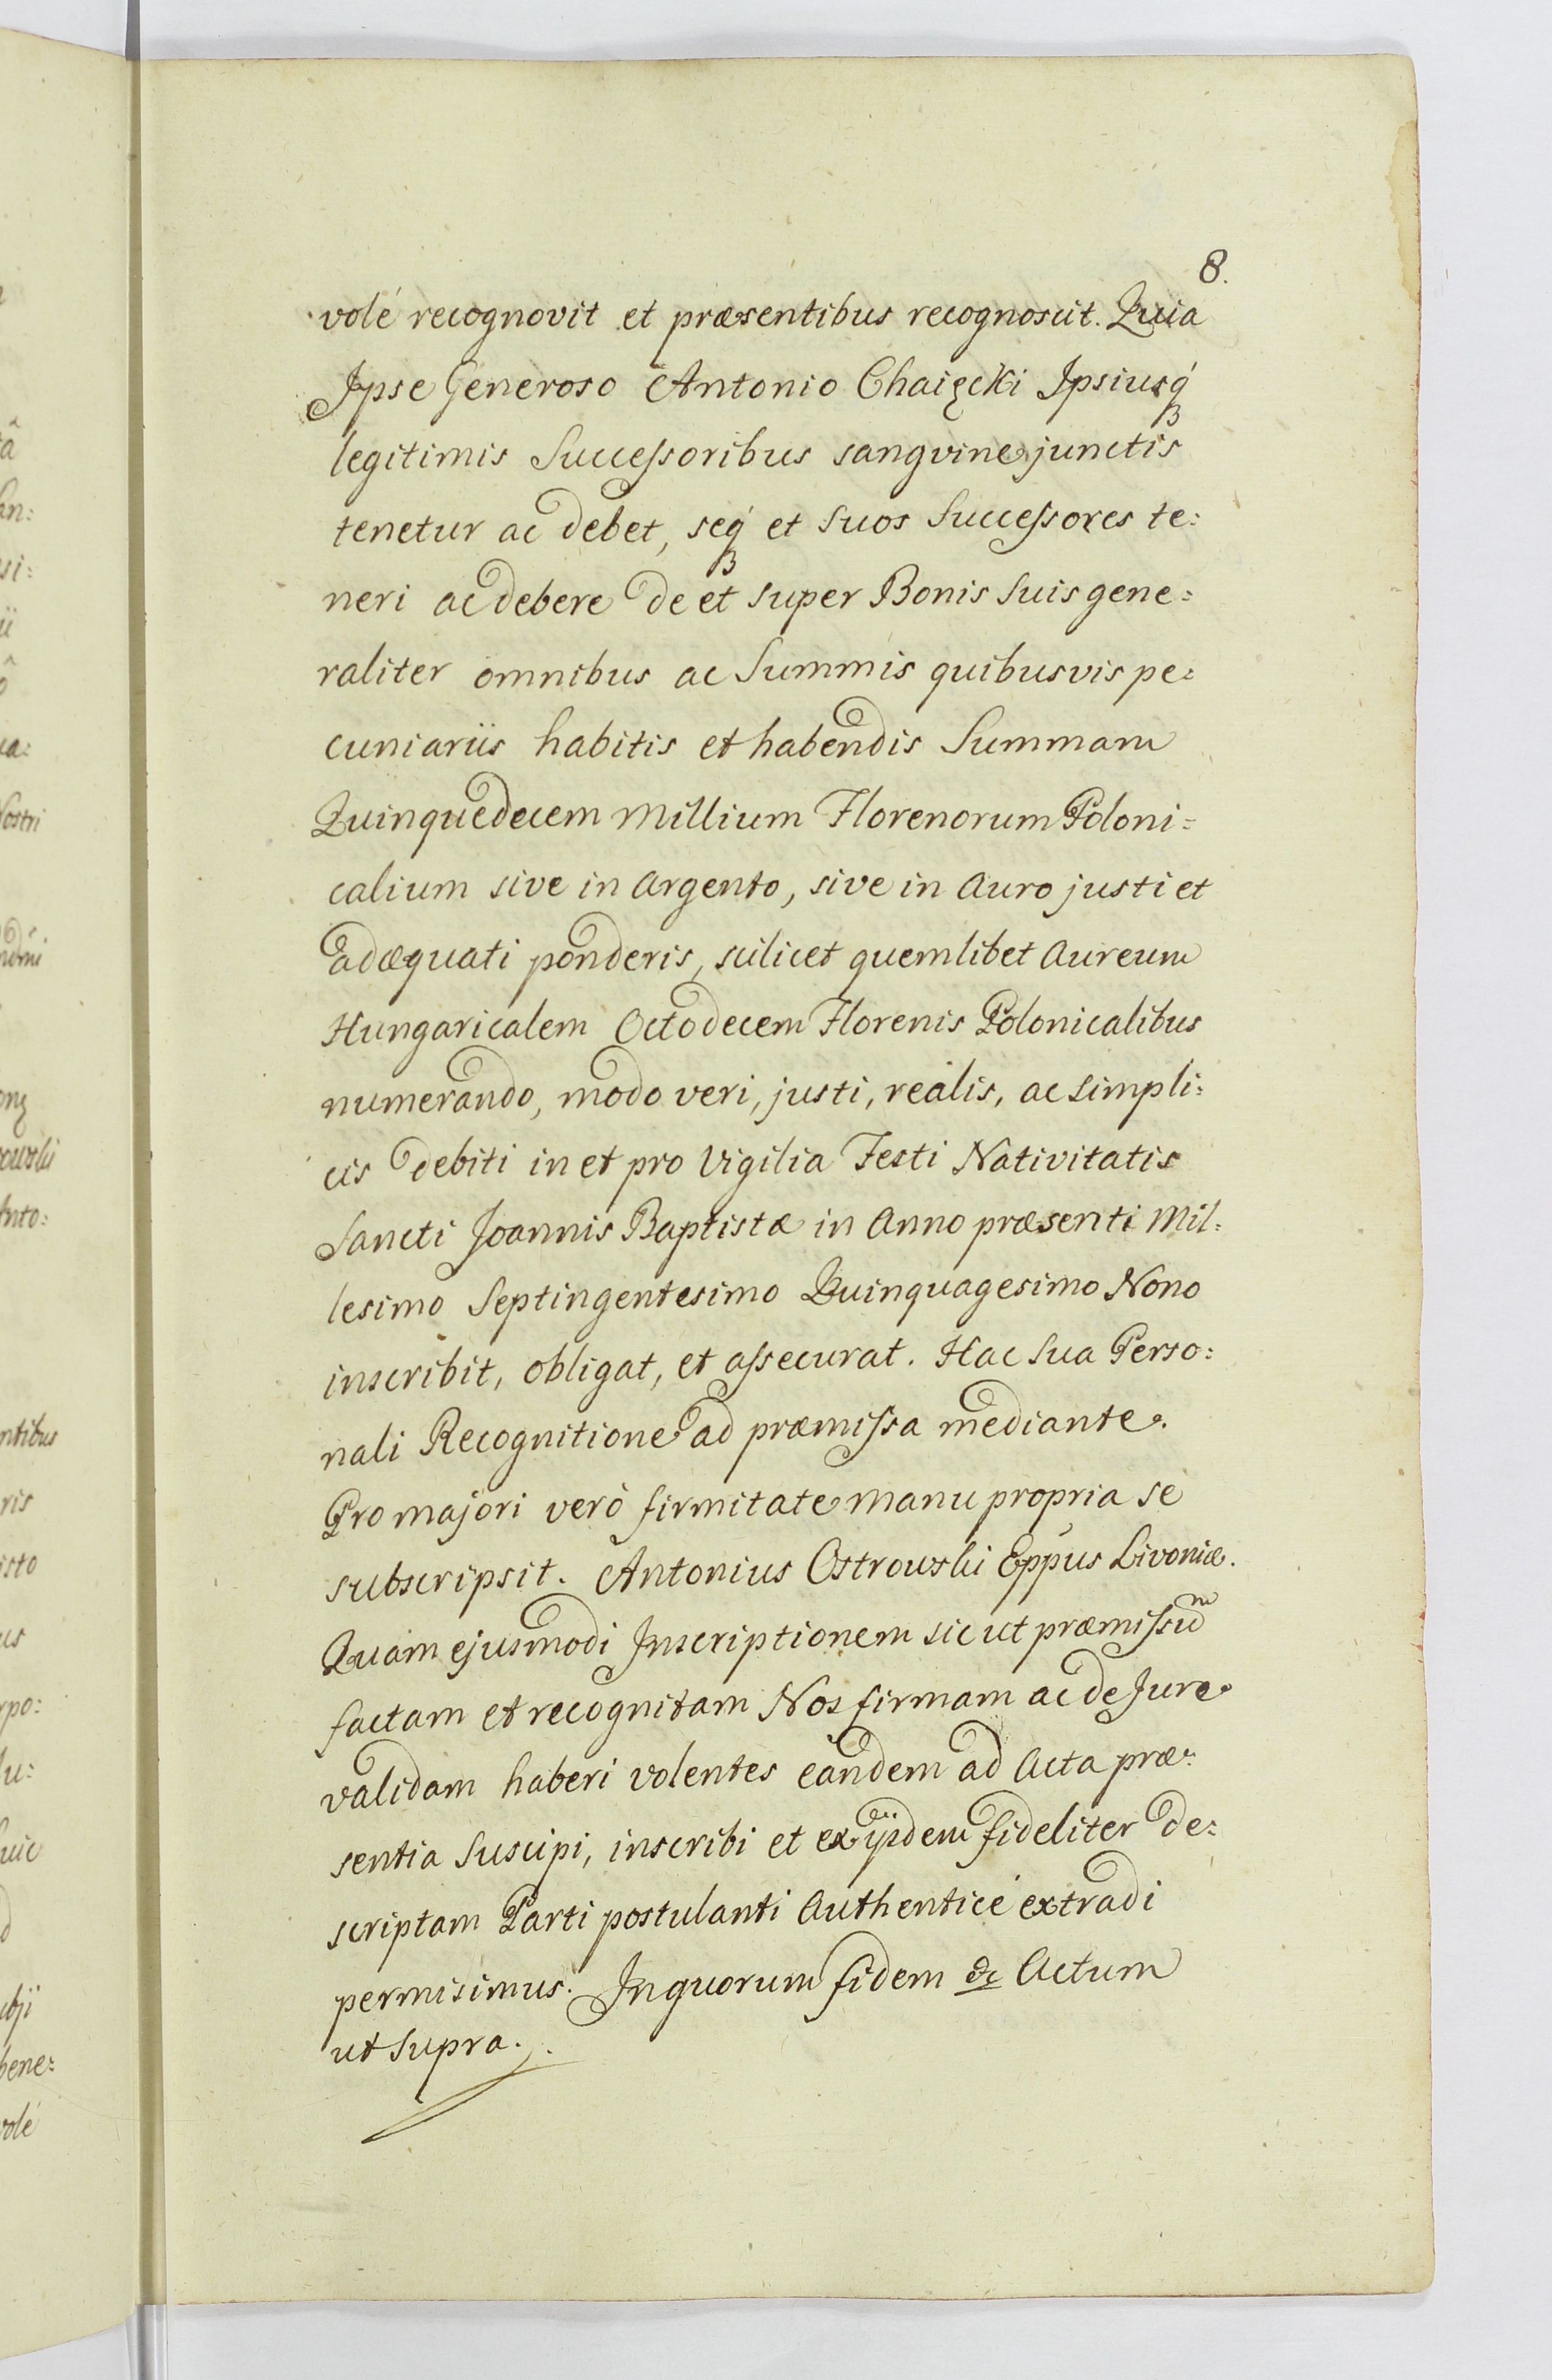 8.
volé recognovit et præsentibus recognoscit. Quia
Ipse Generoso Antonio Chaięcki Ipsiusq́
legitimis Successoribus sangvine junctis
tenetur ac debet, seq́ et Suos Successores te:
neri ac debere de et super Bonis Suis gene:
raliter omnibus ac Summis quibusvis pe:
cuniariis habitis et habendis Summam
Quinquedecem Millium Florenorum Poloni:
calium sive in Argento, sive in Auro justi et
adæquati ponderis, scilicet quemlibet Aureum
Hungaricalem Octodecem Florenis Polonicalibus
numerando, modo veri, justi, realis, ac simpli:
cis debiti in et pro Vigilia Festi Nativitatis
Sancti Joannis Baptistæ in Anno præsenti Mil:
lesimo Septingentesimo Quinquagesimo Nono
inscribit, obligat, et assecurat. Hac Sua Perso:
nali Recognitione ad præmissa mediante.
Pro majori verò firmitate manu propria se
subscripsit. Antonius Ostrowski Eppus Livoniæ.
Quam ejusmodi Inscriptionem sicut præmissũ
factam et recognitam Nos firmam ac de Jure
validam haberi volentes eandem ad Acta præ:
sentia Suscipi, inscribi et ex ijsdem fideliter de:
scriptam Parti postulanti Authenticé extradi
permisimus. In quorum fidem &c Actum
ut Supra.
tâ
si:
ii
ô
ia:
Nostri
owski
Anto:
ntibus
ris
isto
us
rpo:
lu:
bene:
volé